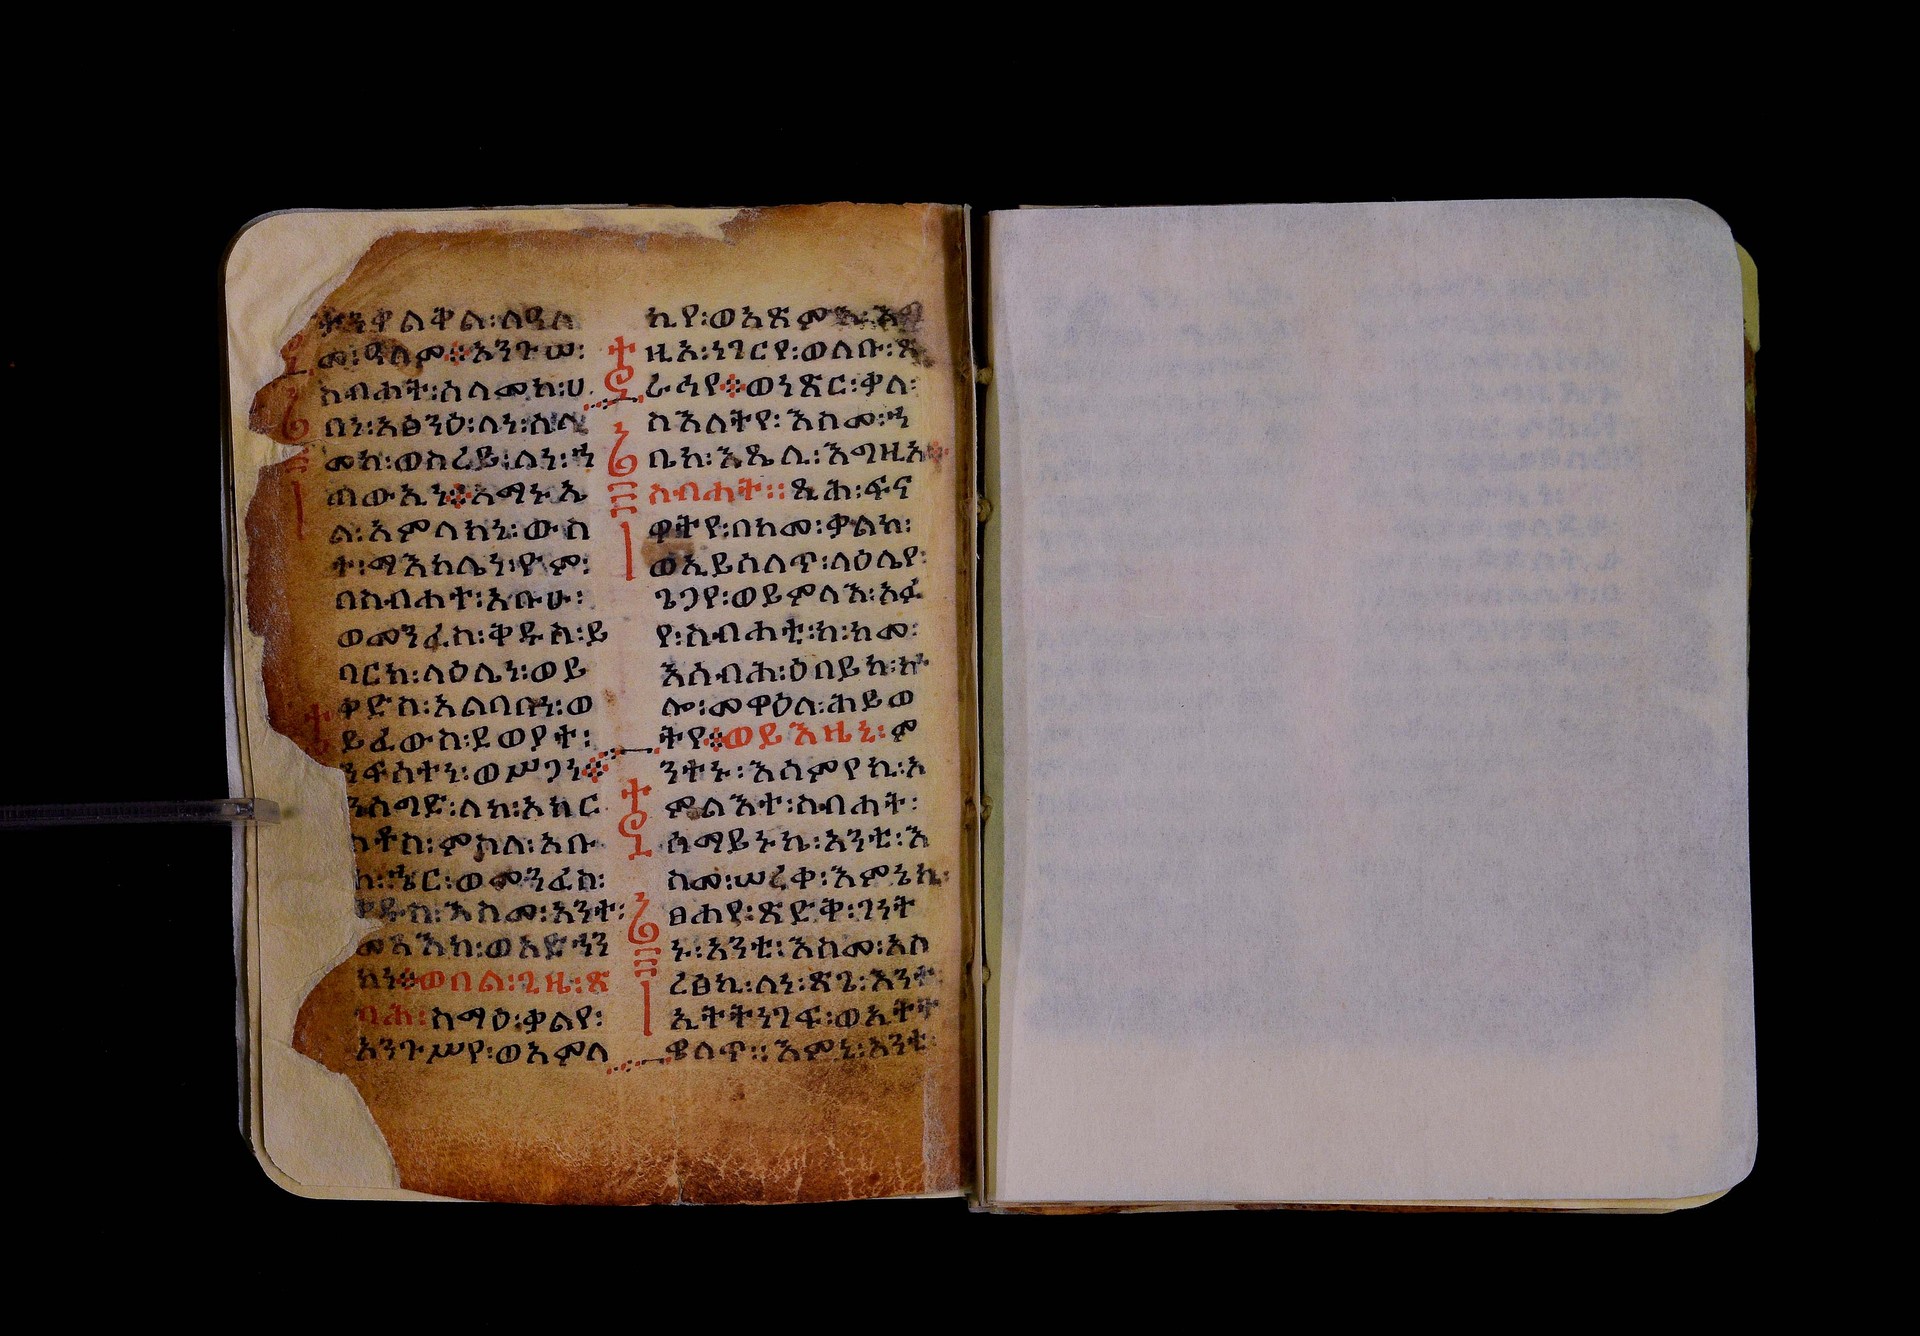 መ፡ ዓለም ። አንጉሠ፡
ስብሐት፡ ስለመከ፡ ሀ
በነ፡ አፅንዕ፡ ለነ፡ ሰላ
መከ፡ ወስረይ፡ ለነ፡ ኀ
ጣውኢነ ። አማኑኤ
ል፡ አምላክነ፡ ውስ
ተ፡ ማእከሌነ፡ ዮም፡
በስብሐተ፡ አቡሁ፡
ወመንፈስ፡ ቅዱስ፡ ይ
ባርክ፡ ላዕሌነ፡ ወይ
ቀድስ፡ አልባቢነ፡ ወ
ይፈውስ፡ ደወያተ፡
ነፍሳተነ፡ ወሥጋነ ።
ንሰግድ፡ ለከ፡ አክር
ስቶስ፡ ምስለ፡ አቡ
ከ፡ ኄር፡ ወመንፈስ፡
ቅዱስ፡ እስመ፡ አንተ፡
መጻእከ፡ ወአድኀን
ከነ ። ወበል፡ ጊዜ፡ ጽ
ባሕ፡ ስማዕ፡ ቃልየ፡
አንጉሥየ፡ ወአምላ
ኪየ፡ ወአጽምእ፡ እግ
ዚአ፡ ነገርየ፡ ወለቡ፡ ጽ
ራሓየ ። ወነጽር፡ ቃለ፡
ስእለትየ፡ እስመ፡ ኀ
ቤከ፡ እጼሊ፡ እግዚአ ።
ስብሐት ። ጺሕ፡ ፍና
ዋትየ፡ በከመ፡ ቃልከ፡
ወኢይስለጥ፡ ላዕሌየ፡
ጌጋየ፡ ወይምላእ፡ አፉ
የ፡ ስብሐቲ፡ ከ፡ ከመ፡
እሰብሕ፡ ዕበይከ፡ ኵ
ሎ፡ መዋዕለ፡ ሕይወ
ትየ ። ወይእዜኒ፡ ም
ንተኑ፡ እሰምየኪ፡ አ
ምልእተ፡ ስብሐት፡
ሰማይኑኬ፡ አንቲ፡ እ
ስመ፡ ሠረቀ፡ እምኔኪ፡
ፀሐየ፡ ጽድቅ፡ ገነት
ኑ፡ አንቲ፡ እስመ፡ አስ
ረፅኪ፡ ለነ፡ ጽጌ፡ እንተ
ኢትትነገፍ፡ ወኢትት
ዌለጥ ። እምኒ፡ አንቲ